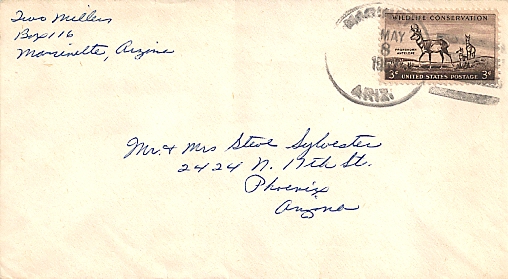 Two Millers
Box 116
Marinette, Arizona
MAY
8
ARIZ.
WILDLIFE CONSERVATION
PRONGHORN
ANTELOPE
3¢ UNITED STATES POSTAGE 3¢
Mr. & Mrs Steve Sylvester
2424 N. 17th St.
Phoenix
Arizona